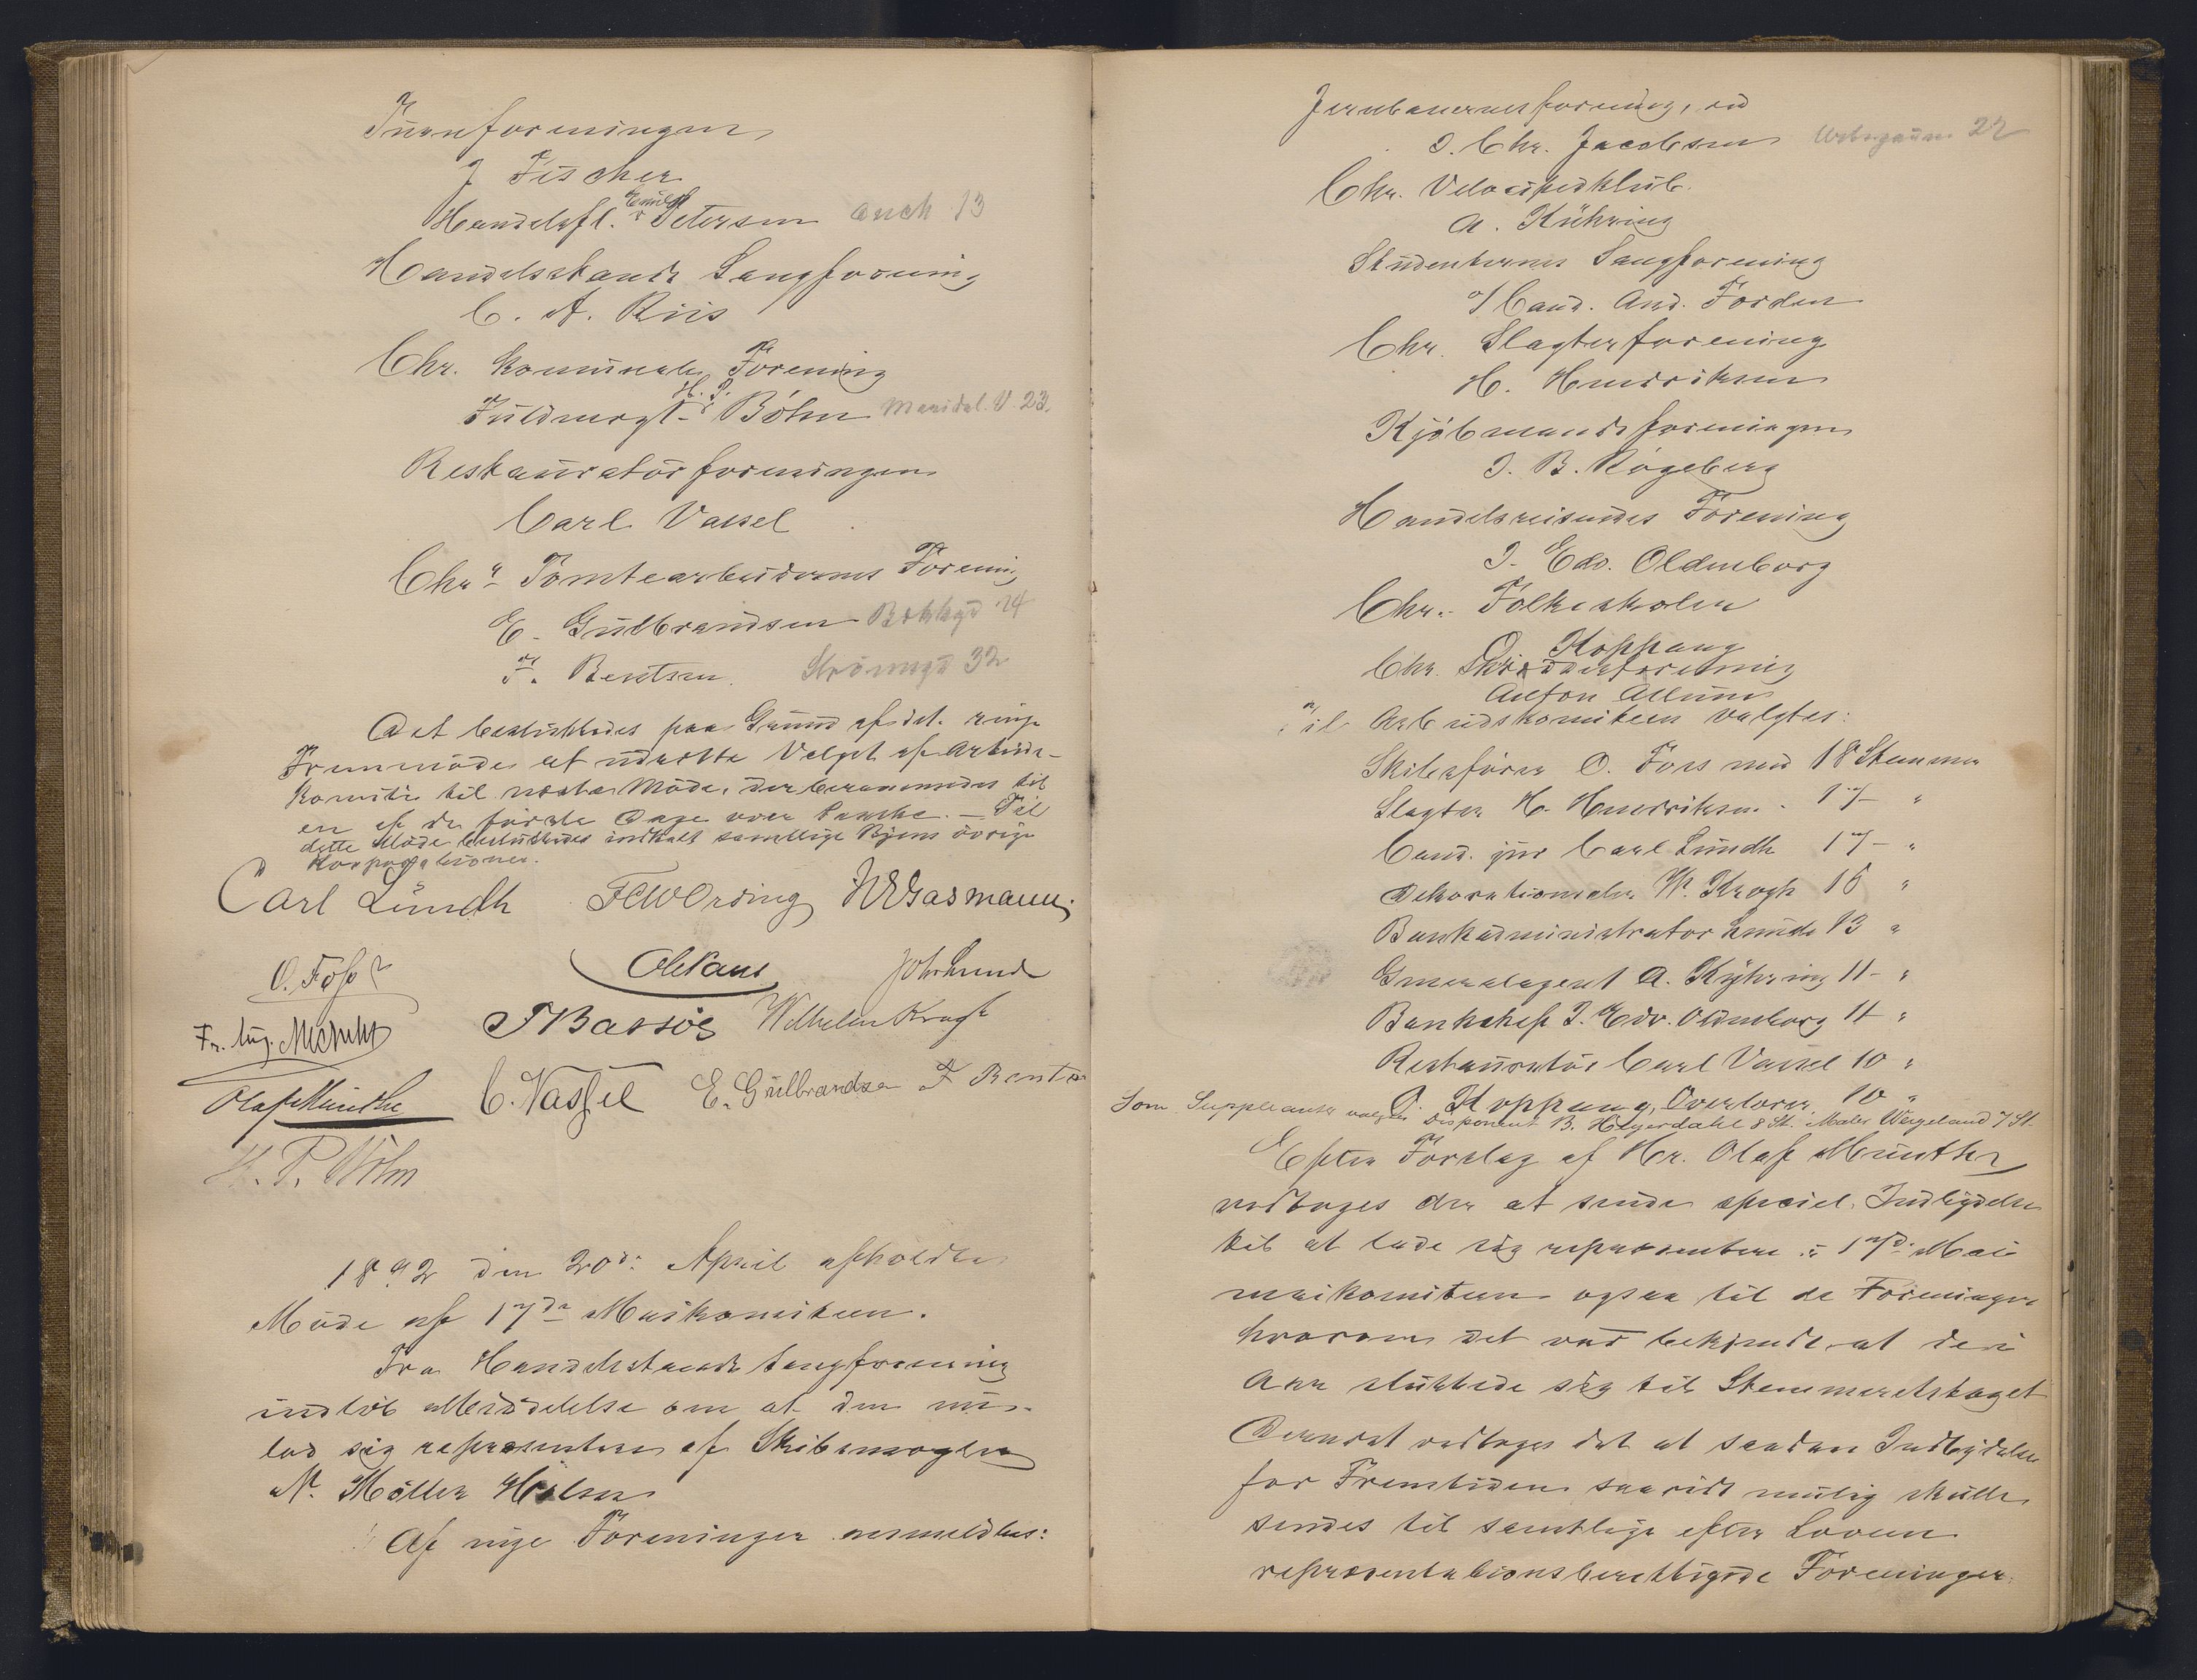 Turnforeningen
J Fischer
Handelsfl. Emil Petersen
Handelsstands Sangforening
C. A. Riis
Chr. Kommunale Forening
Fuldmægt. H. P. Böhm Maridal. V. 23.
Restauratörforeningen
Carl Vassel
Chr. Tomtearbeidernes Forening
E. Gulbrandsen 14
F. Bentsen. 32
Det besluttedes paa Grund af det ringe
Fremmøde at udsætte Valget af Arbeids-
komite til næste Møde, der berammedes til
en af de første Dage over Paaske. – Til
dette Møde besluttedes indkalt samtlige Byens övrige
Korporationer.
Carl Lundh FCWOrding Gasmann
O. Foss Joh Lund
Fr. Aug. T Bassöe Wilhelm Krogh
Olaf Münthe C. Vassel E. Gulbrandsen F Bents
H. P. Böhm
1892 den 20de April afholdtes
Møde af 17de Maikomiteen.
Fra Handelsstands Sangforening
indløb Meddelelse om at den nu
lod sig repræsentere af Skibsmægler
N. Möller
Af nye Foreninger anmeldtes:
Jernbanernes forening, ved
J. Chr. Jacobsen 22
Chr. Velocipedklub.
A. Kühring
Studenternes Sangforening
v/ Cand. And. Forden
Chr. Slagterforening
H. Henriksen
Kjöbmandsforeningen
J. B. Rögeberg
Handelsreisendes Forening
J. Edv. Oldenborg
Chr. Folkeskolen
O. Koppang
Chr. Skrædderforening
Anton Allum
Til Arbeidskomiteen valgtes:
Skibsfører O. Foss med 18 Stemmer
Slagter H. Henriksen - 17 - "
Cand. jur Carl Lundh 17 - "
Dekorationsmaler W. Krogh 16 "
Bankadministrator Lunde 13 "
Generalagent A. Kühring 11 - "
Bankchef J. Edv. Oldenborg 11 "
Restauratör Carl Vassel 10 "
O. Koppang, Overlærer 10 "
Som Suppleanter valgtes Disponent B. Heyerdahl 8 St. Maler Wergeland 7 St.
Efter Forslag af Hr. Olaf Münthe
vedtoges der at sende speciel Indbydelse
til at lade sig repræsentere i 17de Mai
maikomiteen ogsaa til de Foreninger
hvorom det var bekjendt at de i
Aar sluttede sig til Stemmeretstoget
Dernæst vedtoges det at saadan Indbydelse
for Fremtiden saavidt mulig skulle
sendes til samtlige efter Loven
repræsentationsberettigede Foreninger.